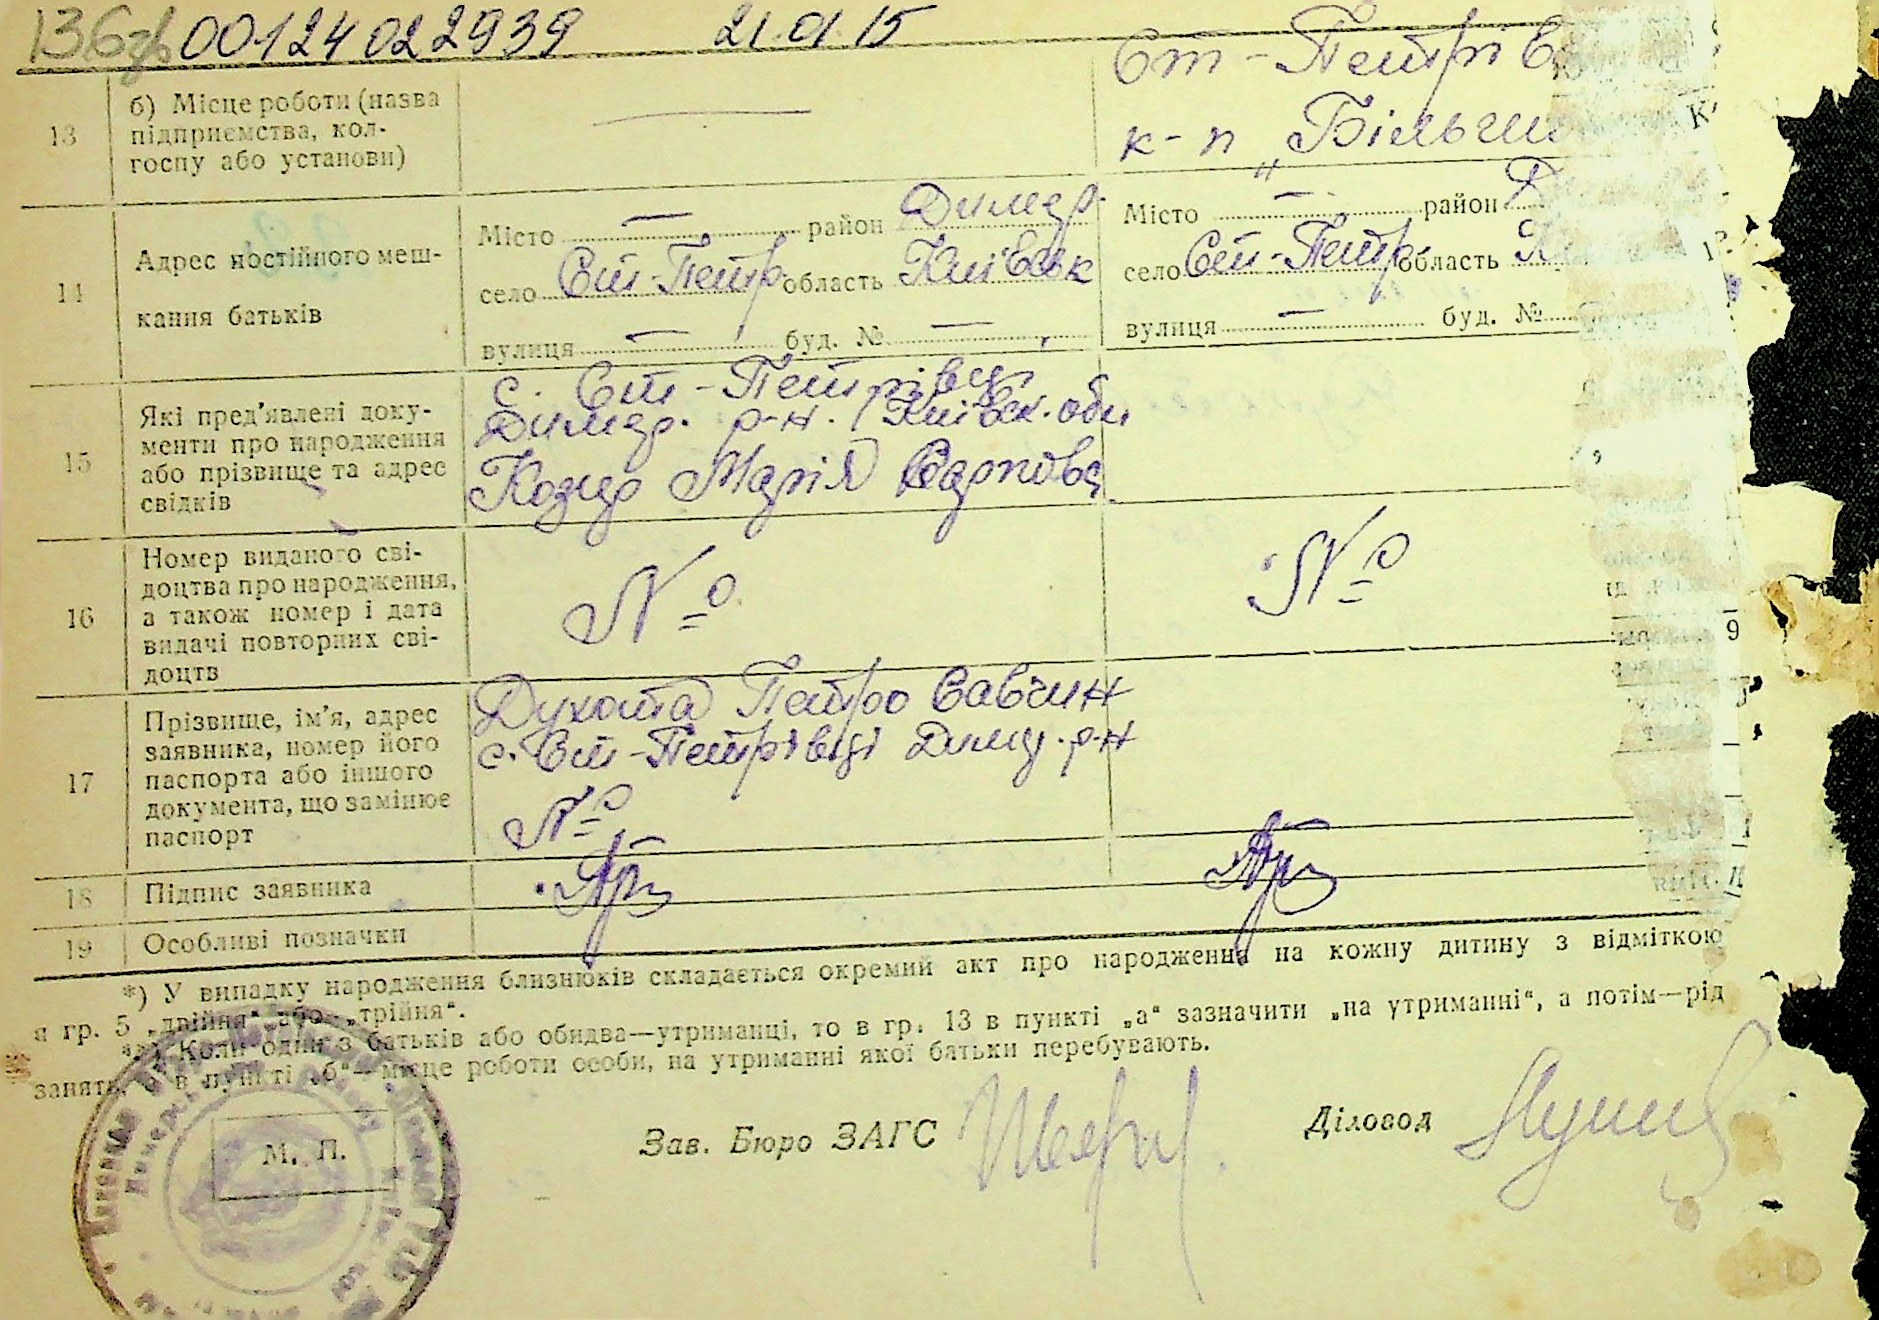 00124022939 21.01.15
13 б) Місце роботи (назва підприємства, кол-госпу або установи) —
Ст-Петрів
к-п „Більши
14 Адрес постійного меш-
кання батьків
Місто — район Димер.
село Ст-Петр. область Київськ
вулиця — буд. № —
Місто — район Д
село Ст-Петр. область К
вулиця — буд. №
15 Які пред'явлені доку-
менти про народження
або прізвище та адрес
свідків
с. Ст-Петрівці
Димер. р-н. Київськ. обл
Козир Марія Карповн
16 Номер виданого сві-
доцтва про народження,
а також номер і дата
видачі повторних сві-
доцтв
№
№
17 Прізвище, ім'я, адрес
заявника, номер його
паспорта або іншого
документа, що замінює
паспорт
Духота Петро Савчин
с. Ст-Петрівці Р-н
№
18 Підпис заявника
19 Особливі позначки
*) У випадку народження близнюків складається окремий акт про народження на кожну дитину з відміткою
я гр. 5 „двійня“ або „трійня“.
**) Коли один з батьків або обидва—утриманці, то в гр. 13 в пункті „а“ зазначити „на утриманні“, а потім—рід
занять, а в пункті „б“—місце роботи особи, на утриманні якої батьки перебувають.
М. П.
Зав. Бюро ЗАГС
Діловод